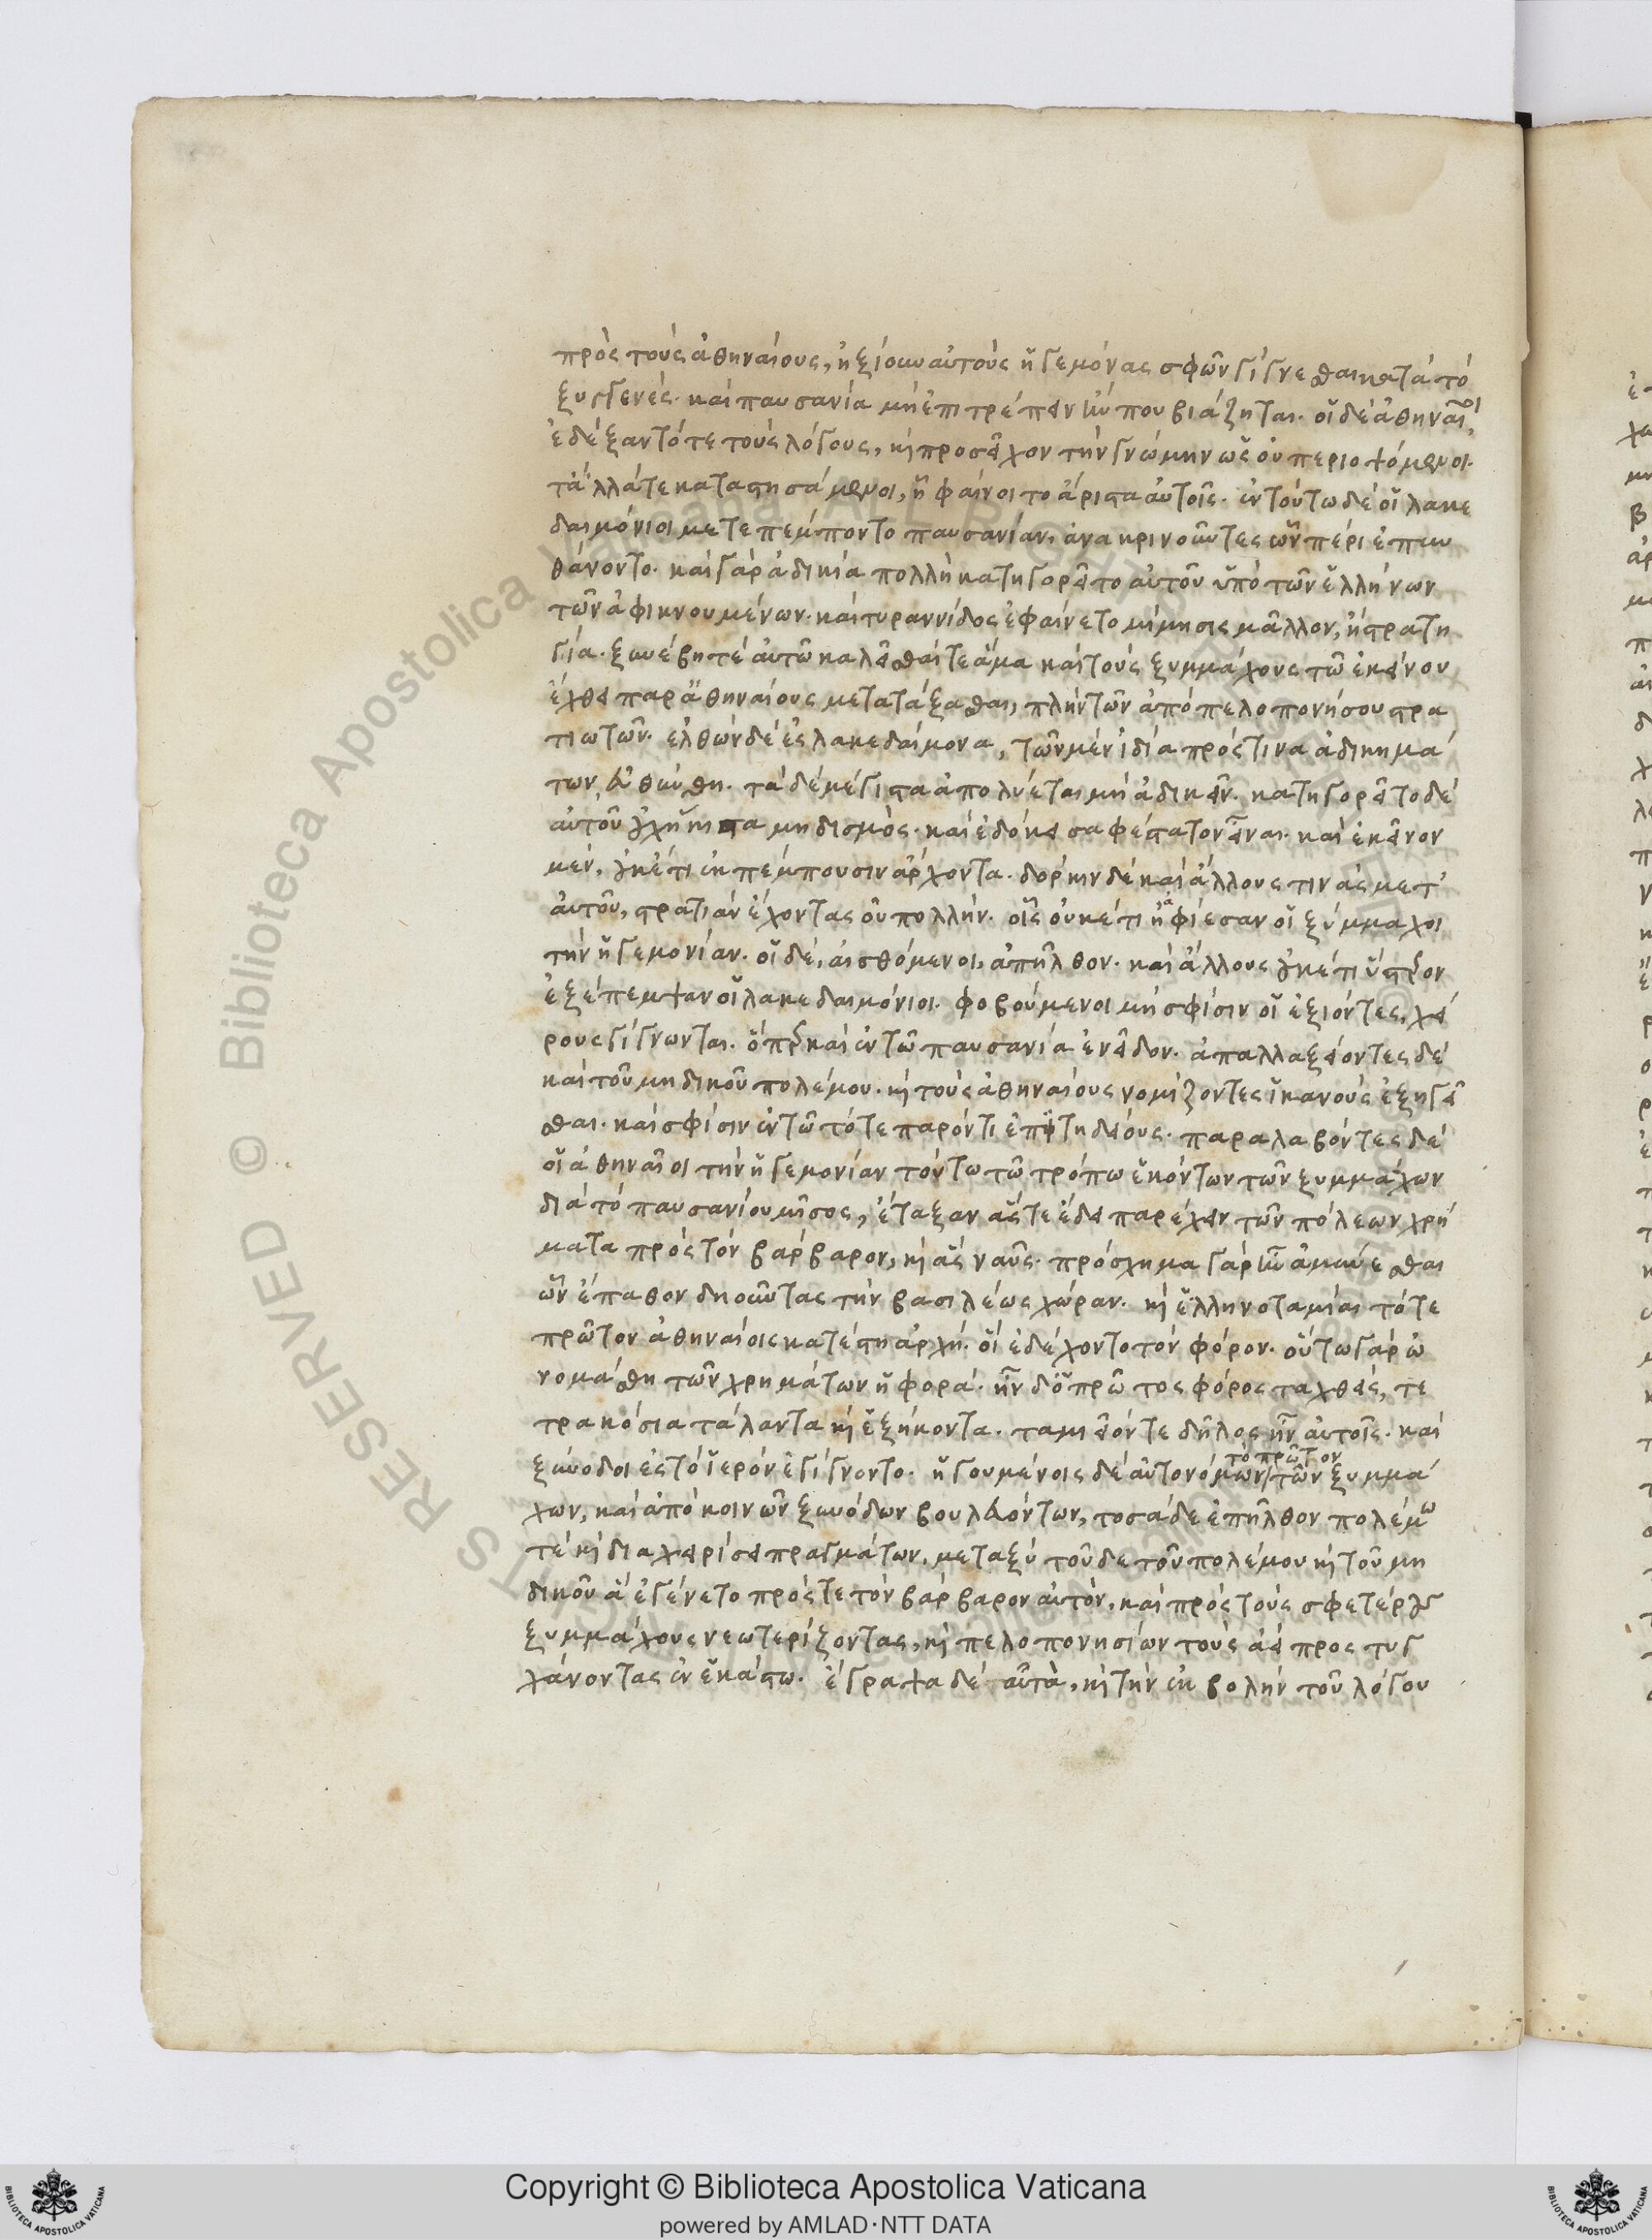 πρὸς τοὺς ἀθηναίους, ἠξίουν αὐτοὺς ἡγεμόνας σφῶν γίγνεσθαι κατὰ τὸ
ξυγγενές· καὶ παυσανία μὴ ἐπιτρέπειν ἤν που βιάζηται. οἱ δὲ ἀθηναῖοι,
ἐδέξαντό τε τοὺς λόγους, καὶ προσεῖχον τὴν γνώμην ὡς οὐ περιοψόμενοι.
τἆλλά τε καταστησάμενοι, ἧ φαίνοιτο ἄριστα αὐτοῖς. ἐν τούτω δὲ οἱ λακε
δαιμόνιοι μετεπέμποντο παυσανίαν, ἀνακρινοῦντες ὧν πέρι ἐπυν
θάνοντο. καὶ γὰρ ἀδικία πολλὴ κατηγορεῖτο αὐτοῦ ὑπὸ τῶν ἑλλήνων
τῶν ἀφικνουμένων. καὶ τυραννίδος ἐφαίνετο μίμησις μᾶλλον, ἢ στρατη
γία. ξυνέβη τὲ αὐτῶ καλεῖσθαί τε ἅμα καὶ τοὺς ξυμμάχους τῶ ἐκείνου
ἔχθει παρ' ἀθηναίους μετατάξασθαι, πλὴν τῶν ἀπὸ πελοπονήσου στρα
τιωτῶν. ἐλθὼν δὲ ἐς λακεδαίμονα, τῶν μὲν ἰδία πρός τινα ἀδικημά
των, εὐθύνθη. τὰ δὲ μέγιστα ἀπολύεται μὴ ἀδικεῖν. κατηγορεῖτο δὲ
αὐτοῦ οὐχ ἥκιστα μηδισμὸς. καὶ ἐδόκει σαφέστατον εἶναι. καὶ ἐκεῖνον
μὲν, οὐκέτι ἐκπέμπουσιν ἄρχοντα. δόρκιν δὲ καὶ ἄλλους τινὰς μετ'
αὐτοῦ, στρατιὰν ἔχοντας οὐ πολλήν. οἷς οὐκέτι ἠαφίεσαν οἱ ξύμμαχοι
τὴν ἡγεμονίαν. οἱ δὲ, αἰσθόμενοι, ἀπῆλθον. καὶ ἄλλους οὐκέτι ὕστερον
ἐξέπεμψαν οἱ λακεδαιμόνιοι. φοβούμενοι μὴ σφίσιν οἱ ἐξιόντες, χεί
ρους γίγνωνται. ὅπερ καὶ ἐν τῶ παυσανία ἐνεῖδον. ἀπαλλαξείοντες δὲ
καὶ τοῦ μηδικοῦ πολέμου. καὶ τοὺς ἀθηναίους νομίζοντες ἱκανοὺς ἐξηγεῖ
σθαι. καὶ σφίσιν ἐν τῶ τότε παρόντι ἐπιτηδείους. παραλαβόντες δὲ
οἱ ἀθηναῖοι τὴν ἡγεμονίαν τούτω τῶ τρόπω ἑκόντων τῶν ξυμμάχων
διὰ τὸ παυσανίου μῖσος, ἔταξαν ἅς τε ἔδει παρέχειν τῶν πόλεων χρή
ματα πρὸς τὸν βάρβαρον, καὶ ἃς ναῦς. πρόσχημα γὰρ ἦν ἀμύνεσθαι
ὧν ἔπαθον δηοῦντας τὴν βασιλέως χώραν. καὶ ἑλληνοταμίαι τότε
πρῶτον ἀθηναίοις κατέστη ἀρχή. οἳ ἐδέχοντο τὸν φόρον. οὕτω γὰρ ὠ
νομάσθη τῶν χρημάτων ἡ φορά. ἦν δ' ὁ πρῶτος φόρος ταχθείς, τε
τρακόσια τάλαντα καὶ ἑξήκοντα. ταμιεῖόν τε δῆλος ἦν αὐτοῖς. καὶ
ξύνοδοι ἐς τὸ ἱερὸν ἐγίγνοντο. ἡγουμένοις δὲ αὐτονόμων τὸ πρῶτον τῶν ξυμμά
χων, καὶ ἀπὸ κοινῶν ξυνόδων βουλευόντων, τοσάδε ἐπῆλθον πολέμω
τὲ καὶ διαχειρίσει πραγμάτων. μεταξὺ τοῦδε τοῦ πολέμου καὶ τοῦ μη
δικοῦ ἃ ἐγένετο πρός τε τὸν βάρβαρον αὐτόν, καὶ πρὸς τοὺς σφετέρους
ξυμμάχους νεωτερίζοντας, καὶ πελοπονησίων τοὺς ἀεὶ προστυγ
χάνοντας ἐν ἑκάστω. ἔγραψα δὲ αὐτὰ, καὶ τὴν ἐκβολὴν τοῦ λόγου
Copyright © Biblioteca Apostolica Vaticana
powered by AMLAD·NTT DATA